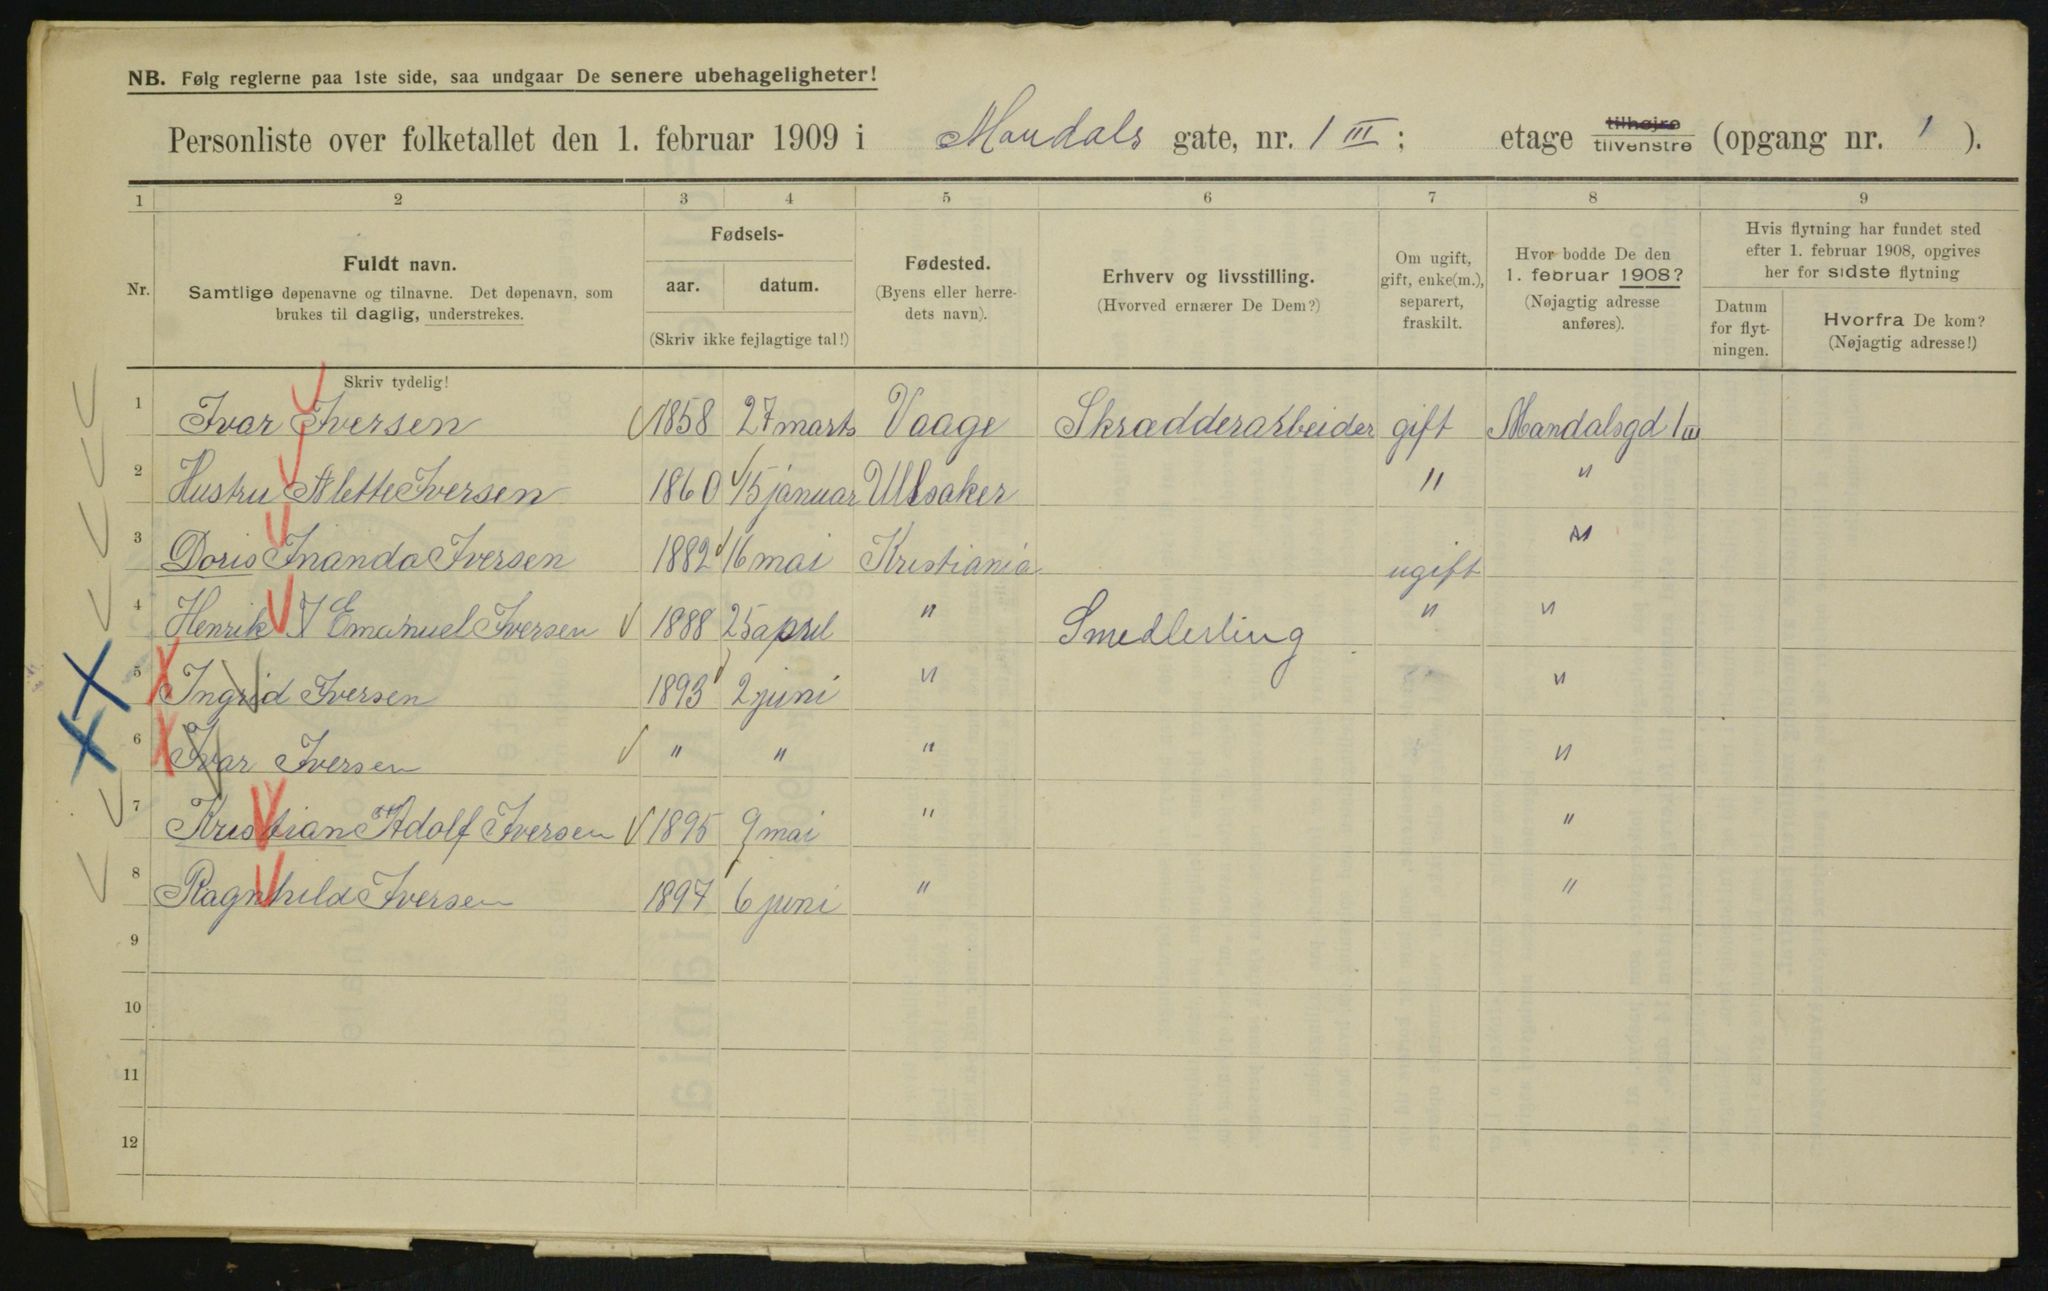 NB. Følg reglerne paa 1ste side, saa undgaar De senere ubehageligheter!
Personliste over folketallet den 1. februar 1909 i Mandals gate, nr. 1 III; etage tilhøjre tilvenstre (opgang nr. 1 ).
1 2 3 4 5 6 7 8 9
Nr.
Fuldt navn.
Samtlige døpenavne og tilnavne. Det døpenavn, som
brukes til daglig, understrekes.
Fødsels-
aar. datum.
(Skriv ikke fejlagtige tal!)
Fødested.
(Byens eller herre-
dets navn).
Erhverv og livsstilling.
(Hvorved ernærer De Dem?)
Om ugift,
gift, enke(m.),
separert,
fraskilt.
Hvor bodde De den
1. februar 1908?
(Nøjagtig adresse
anføres).
Hvis flytning har fundet sted
efter 1. februar 1908, opgives
her for sidste flytning
Datum
for flyt-
ningen.
Hvorfra De kom?
(Nøjagtig adresse!)
Skriv tydelig!
1 Ivar Iversen 1858 27 marts Vaage Skrædderarbeider gift Mandalsgd 1 III
2 Hustru Alette Iversen 1860 15 januar Ullsaker " "
3 Doris Inanda Iversen 1882 16 mai Kristiania ugift "
4 Henrik I Emanuel Iversen 1888 25 april " Smedlerling " "
5 Ingrid Iversen 1893 2 juni " "
6 Ivar Iversen " " " "
7 Kristian Adolf Iversen 1895 9 mai " "
8 Ragnhild Iversen 1897 6 juni " "
9
10
11
12